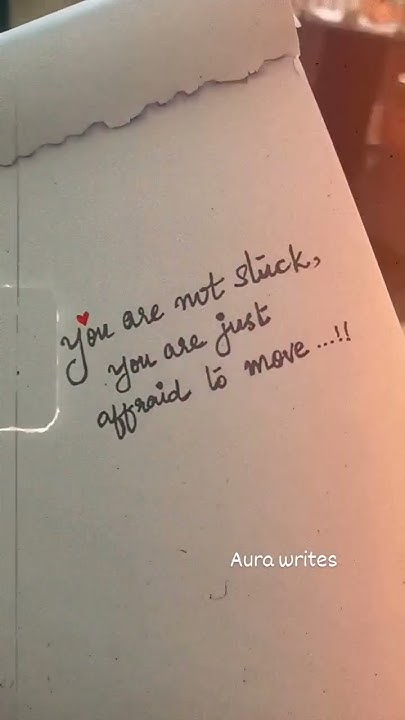 You are not stuck,
you are just
affraid to move ...!!
Aura writes